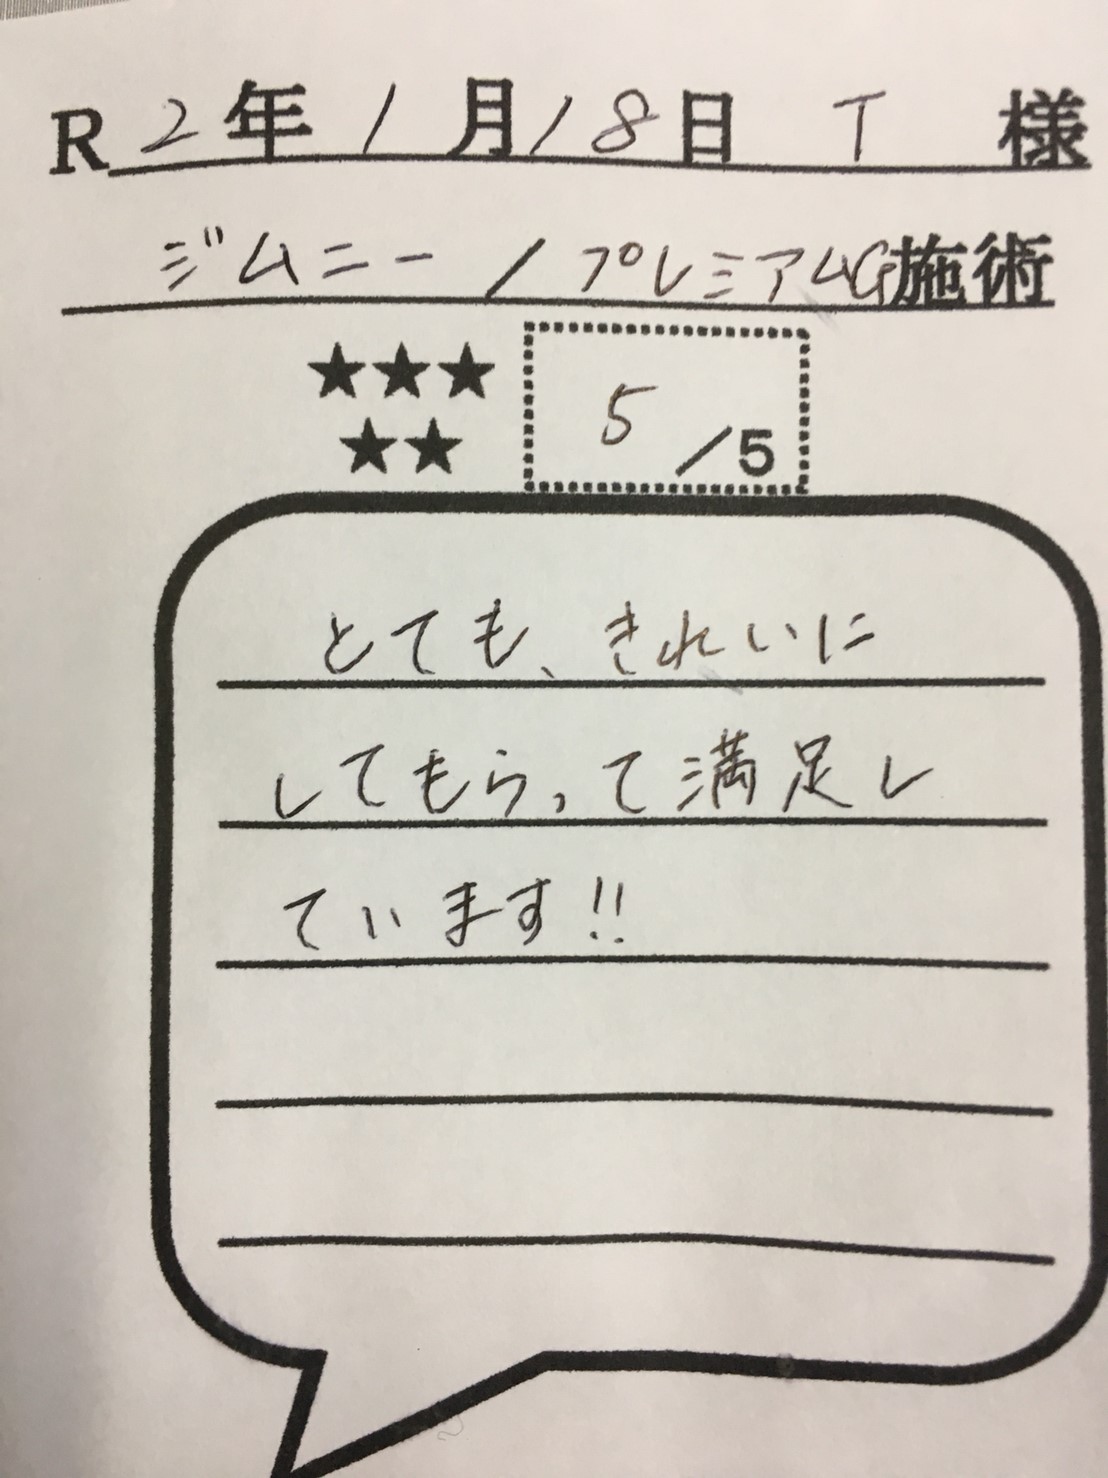 R2年1月18日 T 様
ジムニー/プレミアムG施術
★★★
★★
5/5
とても、きれいに
してもらって満足し
ています!!